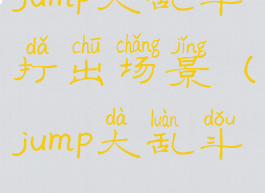 jump大乱斗
dǎ chū chǎng jǐng
打出场景（
dà luàn dǒu
jump大乱斗